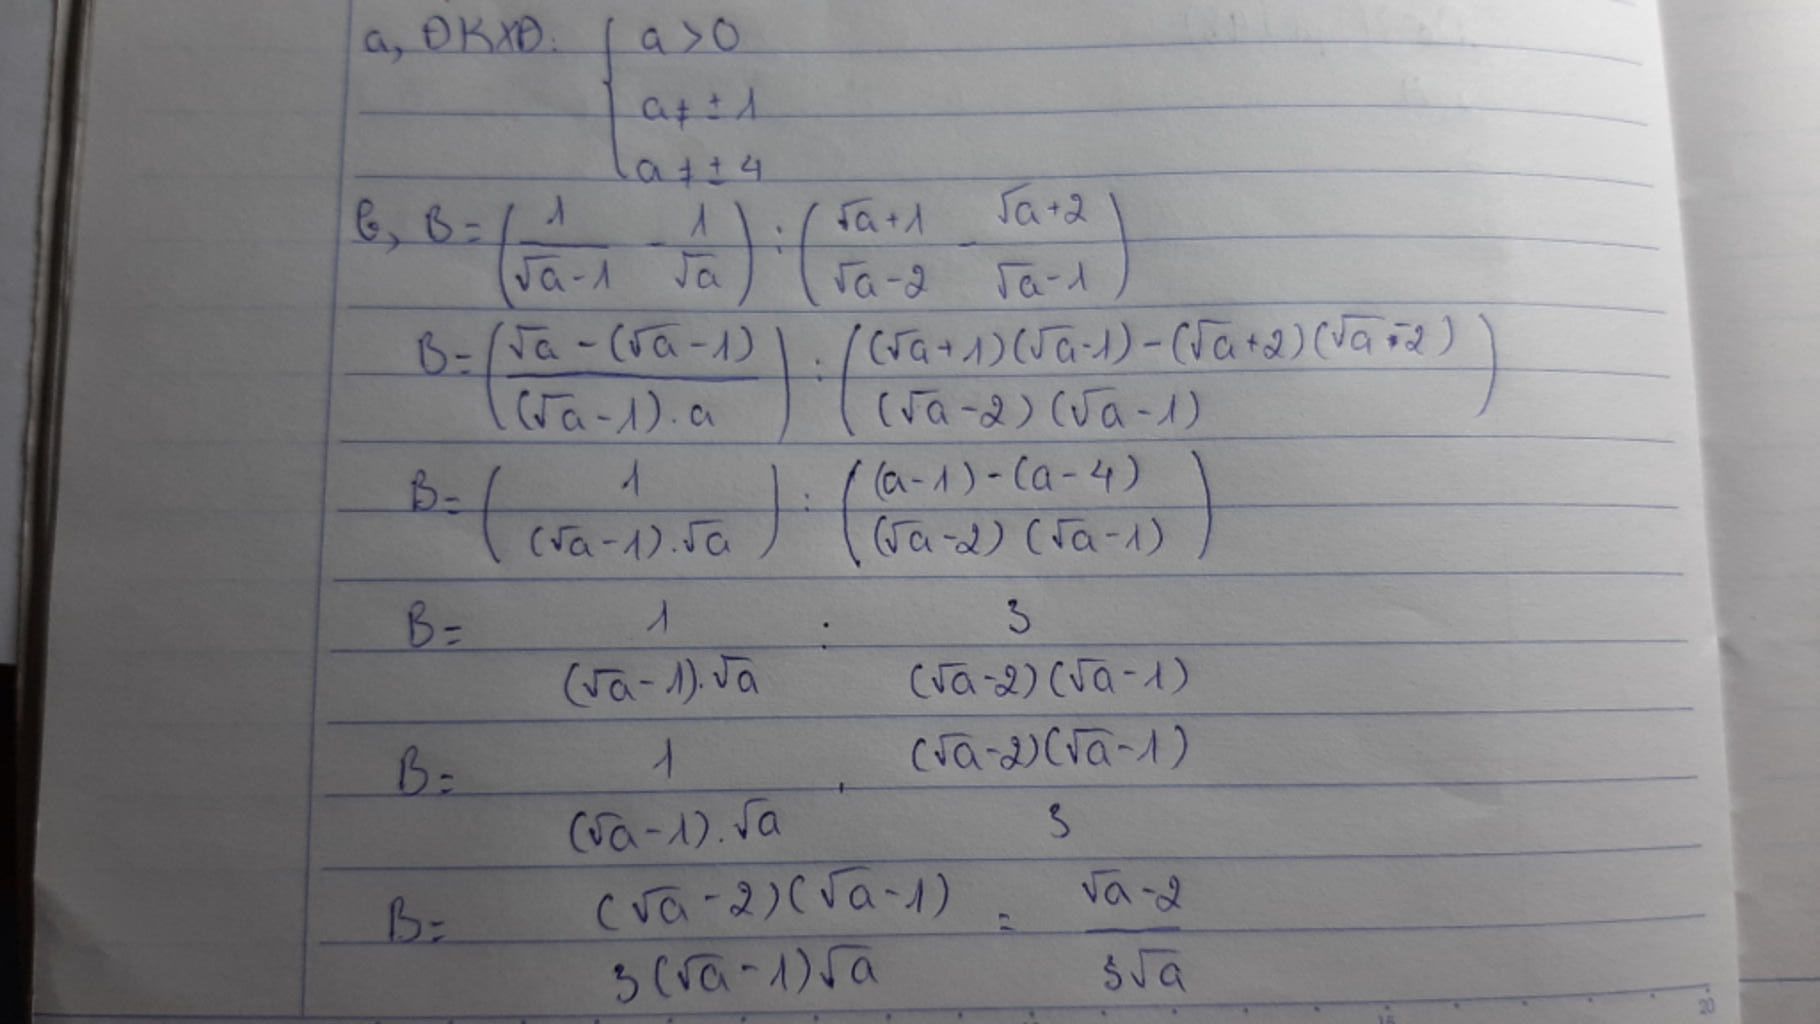 a, ĐKXĐ: { a > 0
a ≠ ± 1
a ≠ ± 4
b, B = (1/(√a - 1) - 1/√a) : ((√a + 1)/(√a - 2) - (√a + 2)/(√a - 1))
B = ((√a - (√a - 1))/((√a - 1).a)) : (((√a + 1)(√a - 1) - (√a + 2)(√a - 2))/((√a - 2)(√a - 1)))
B = (1/((√a - 1).√a)) : (((a - 1) - (a - 4))/((√a - 2)(√a - 1)))
B = 1/((√a - 1).√a) : 3/((√a - 2)(√a - 1))
B = 1/((√a - 1).√a) . ((√a - 2)(√a - 1))/3
B = ((√a - 2)(√a - 1))/(3(√a - 1)√a) = (√a - 2)/(3√a)
15 20